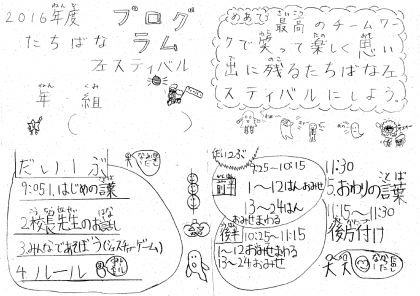 2016年度
たちばな
プログラム
フェスティバル
年 組
( )
めあて
最高のチームワー
クで笑って楽しく思い
出に残るたちばなフェ
スティバルにしよう。
だい1ぶ
9:05 1.はじめの言葉
2.校長先生のお話し
3.みんなであそぼう(ジェスチャーゲーム)
4.ルール
だい2ぶ
前半
9:25〜10:15
1〜12はんおみせ
13〜24はん
おみせまわる
後半
10:25〜11:15
1〜12おみせまわる
13〜24おみせ
11:30
5.おわりの言葉
11:15〜11:30
後片付け